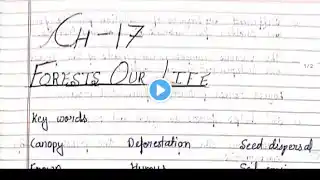 CH-17
FORESTS OUR LIFE
Key words
Canopy Deforestation Seed dispersal
Crown Humus Soil erosion